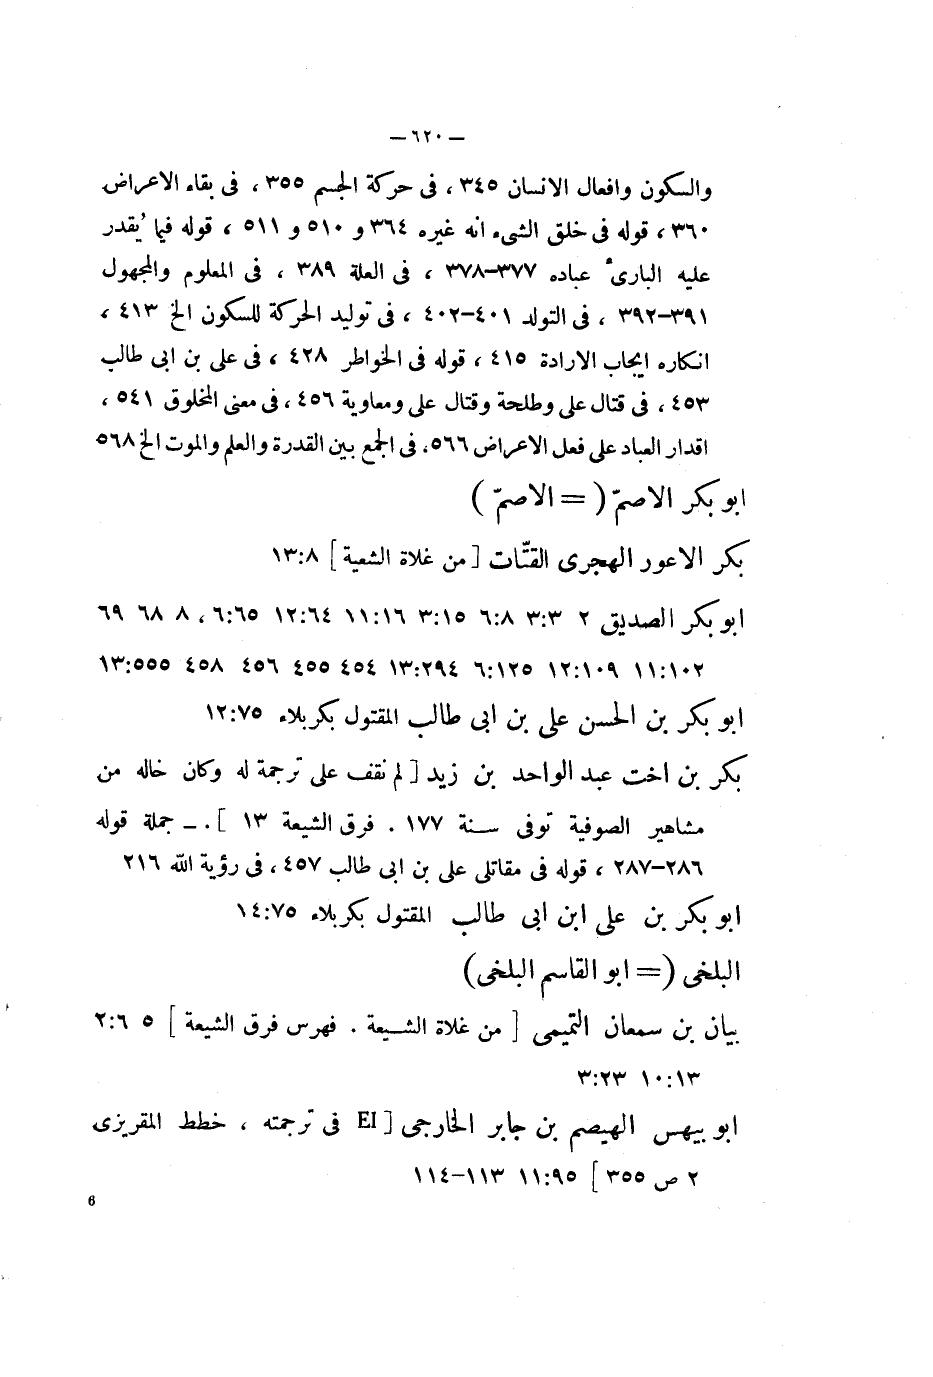 — ٦٢٠ —
والسكون وافعال الانسان ٣٤٥ ، فى حركة الجسم ٣٥٥ ، فى بقاء الاعراض
٣٦٠ ، قوله فى خلق الشىء انه غيره ٣٦٤ و ٥١٠ و ٥١١ ، قوله فيما يُقدر
عليه البارئ عباده ٣٧٧–٣٧٨ ، فى العلة ٣٨٩ ، فى المعلوم والمجهول
٣٩١–٣٩٢ ، فى التولد ٤٠١–٤٠٢ ، فى توليد الحركة للسكون الخ ٤١٣ ،
انكاره ايجاب الارادة ٤١٥ ، قوله فى الخواطر ٤٢٨ ، فى على بن ابى طالب
٤٥٣ ، فى قتال على وطلحة وقتال على ومعاوية ٤٥٦ ، فى معنى المخلوق ٥٤١ ،
اقدار العباد على فعل الاعراض ٥٦٦، فى الجمع بين القدرة والعلم والموت الخ ٥٦٨
ابو بكر الاصمّ ( = الاصمّ )
بكر الاعور الهجرى القتّات [ من غلاة الشعية ] ١٣:٨
ابو بكر الصديق ٢ ٣:٣ ٦:٨ ٣:١٥ ١١:١٦ ١٢:٦٤ ٦:٦٥ ، ٨ ٦٨ ٦٩
١١:١٠٢ ١٢:١٠٩ ٦:١٢٥ ١٣:٢٩٤ ٤٥٤ ٤٥٥ ٤٥٦ ٤٥٨ ١٣:٥٥٥
ابو بكر بن الحسن على بن ابى طالب المقتول بكربلاء ١٢:٧٥
بكر بن اخت عبد الواحد بن زيد [ لم نقف على ترجمة له وكان خاله من
مشاهير الصوفية توفى سنة ١٧٧ . فرق الشيعة ١٣ ] . — جملة قوله
٢٨٦–٢٨٧ ، قوله فى مقاتلى على بن ابى طالب ٤٥٧ ، فى رؤية الله ٢١٦
ابو بكر بن على ابن ابى طالب المقتول بكربلاء ١٤:٧٥
البلخى ( = ابو القاسم البلخى )
بيان بن سمعان التميمى [ من غلاة الشيعة . فهرس فرق الشيعة ] ٥ ٢:٦
١٠:١٣ ٣:٢٣
ابو بيهس الهيصم بن جابر الخارجى [ EI فى ترجمته ، خطط المقريزى
٢ ص ٣٥٥ ] ١١:٩٥ ١١٣–١١٤
6